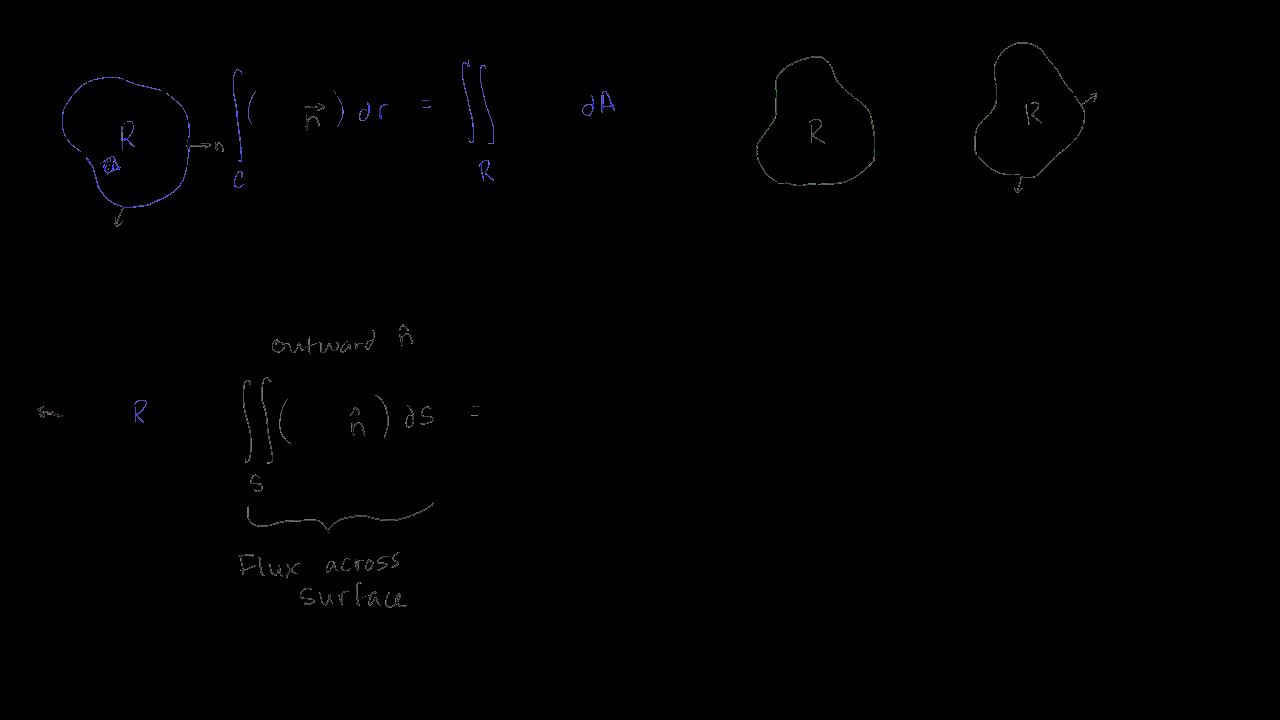 R n ∫_C ( n⃗ ) dr = ∬_R dA
R
R
outward n̂
R ∬_S ( n̂ ) dS =
Flux across
surface